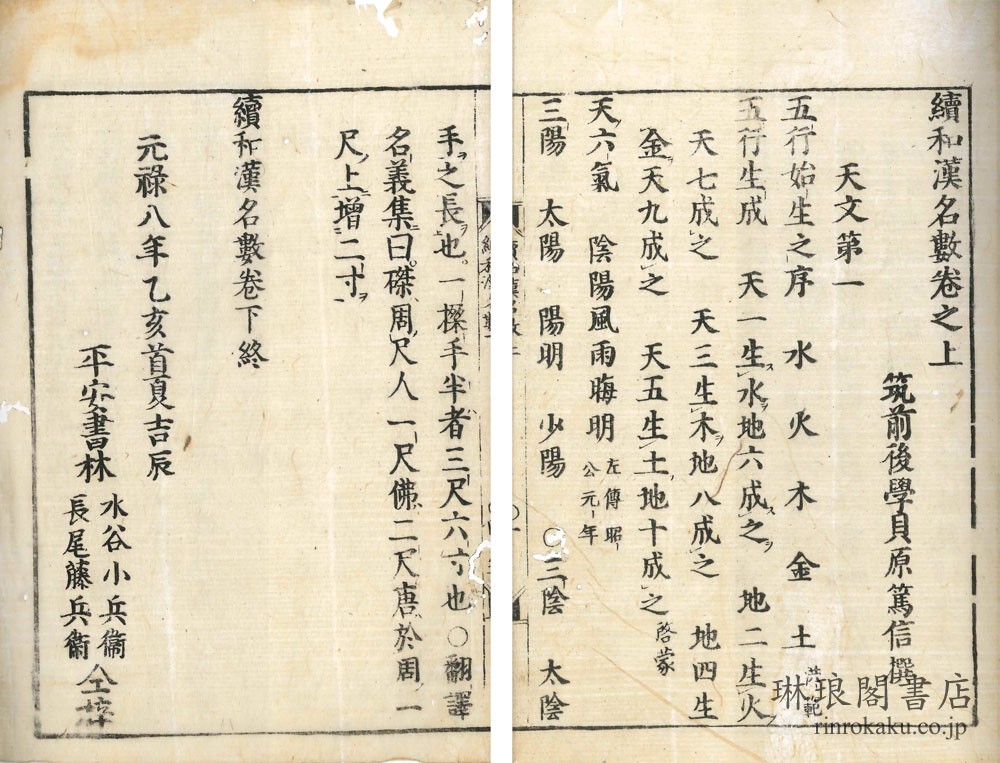 續和漢名數卷之上
筑前後學貝原篤信撰
天文第一
五行始生之序 水 火 木 金 土 洪範
五行生成 天一生水地六成之 地二生火
天七成之 天三生木地八成之 地四生
金天九成之 天五生土地十成之 啓蒙
天六氣 陰陽風雨晦明 左傳昭公元年
三陽 太陽 陽明 少陽 ○三陰 太陰
手之長也一搩手半者三尺六寸也○翻譯
名義集曰磔周尺人一尺佛二尺唐於周一
尺上增二寸
續和漢名數卷下終
元祿八年乙亥首夏吉辰
平安書林
水谷小兵衞
長尾藤兵衞
仝梓
琳琅閣書店
rinrokaku.co.jp